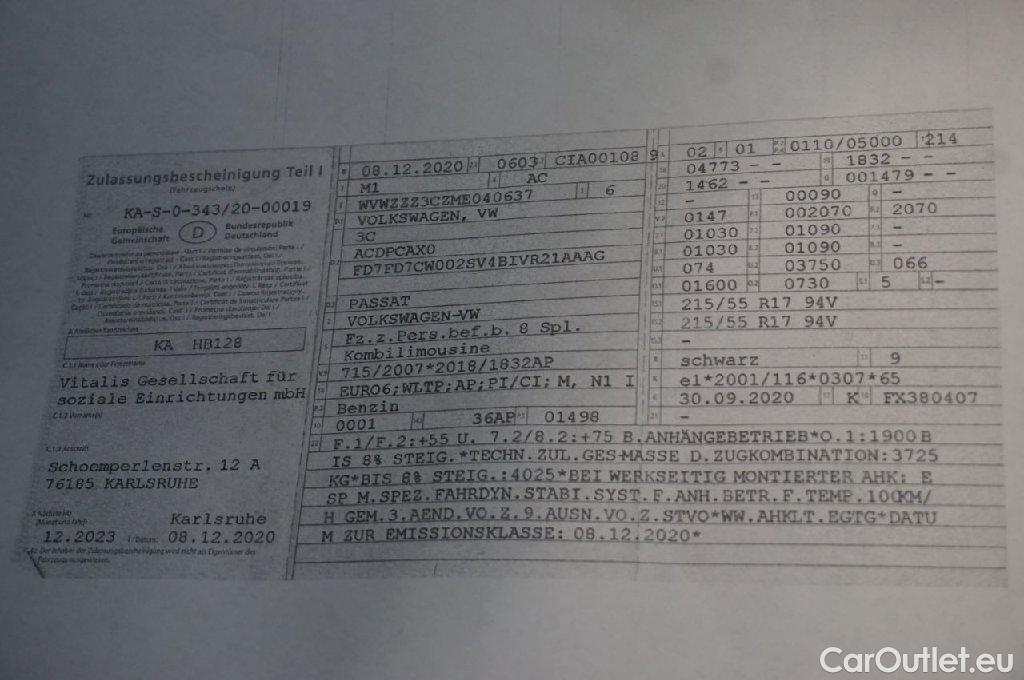 Zulassungsbescheinigung Teil I
(Fahrzeugschein)
Nr. KA-S-O-343/20-00019
Europäische Gemeinschaft D Bundesrepublik Deutschland
A Amtliches Kennzeichen
KA HB128
C.1.1 Name oder Firmenname
Vitalis Gesellschaft für
soziale Einrichtungen mbH
C.1.2 Vorname(n)
C.1.3 Anschrift
Schoemperlenstr. 12 A
76185 KARLSRUHE
Karlsruhe
12.2023 I Datum: 08.12.2020
C.4c Der Inhaber der Zulassungsbescheinigung wird nicht als Eigentümer des
Fahrzeugs ausgewiesen.
B 08.12.2020 2.1 0603 CIA00108 9
J M1 4 AC
E WVWZZZ3CZME040637 3 6
D.1 VOLKSWAGEN, VW
3C
D.2 ACDPCAX0
FD7FD7CW002SV4BIVR21AAAG
D.3 PASSAT
2 VOLKSWAGEN-VW
5 Fz.z.Pers.bef.b. 8 Spl.
Kombilimousine
V.9 715/2007*2018/1832AP
14 EURO6;WLTP;AP;PI/CI; M, N1 I
P.3 Benzin
10 0001 14.1 36AP P.1 01498
L 02 9 01 0110/05000 T 214
18 04773 - - 19 1832 - -
20 1462 - - G 001479 - -
12 - 13 00090 Q -
V.7 0147 F.1 002070 F.2 2070
7.1 01030 7.2 01090 -
8.1 01030 8.2 01090 -
U.1 074 U.2 03750 U.3 066
O.1 01600 O.2 0730 S.1 5 S.2 -
15.1 215/55 R17 94V
15.2 215/55 R17 94V
15.3 -
R schwarz 11 9
K e1*2001/116*0307*65
6 30.09.2020 17 K 16 FX380407
21 -
22 F.1/F.2:+55 U. 7.2/8.2:+75 B.ANHÄNGEBETRIEB*O.1:1900 B
IS 8% STEIG.*TECHN.ZUL.GES-MASSE D.ZUGKOMBINATION:3725
KG*BIS 8% STEIG.:4025*BEI WERKSEITIG MONTIERTER AHK: E
SP M.SPEZ.FAHRDYN.STABI.SYST.F.ANH.BETR.F.TEMP.100KM/
H GEM.3.AEND.VO.Z.9.AUSN.VO.Z.STVO*WW.AHKLT.EGTG*DATU
M ZUR EMISSIONSKLASSE: 08.12.2020*
CarOutlet.eu